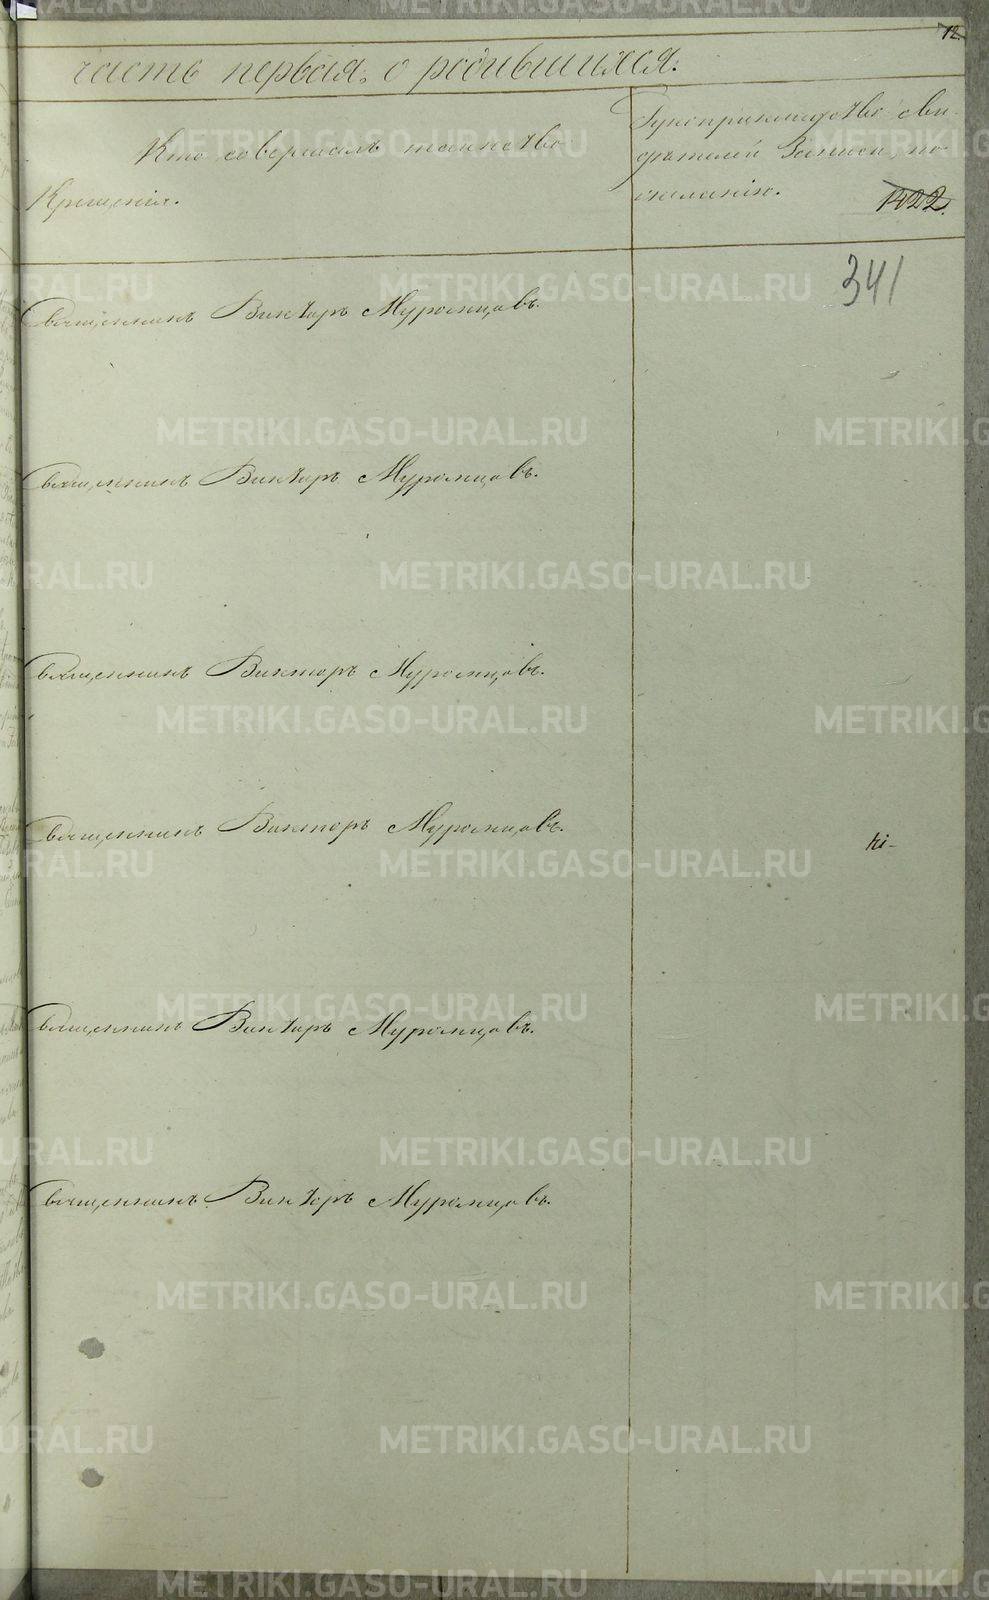 12.
часть первая, о родившихся.
Кто совершалъ таинство
Крещенія.
Рукоприкладство сви-
дѣтелей записи, по
желанію.
1422.
341
Священникъ Викторъ Муромцовъ.
Священникъ Викторъ Муромцовъ.
Священникъ Викторъ Муромцовъ.
Священникъ Викторъ Муромцовъ.
Священникъ Викторъ Муромцовъ.
Священникъ Викторъ Муромцовъ.
METRIKI.GASO-URAL.RU